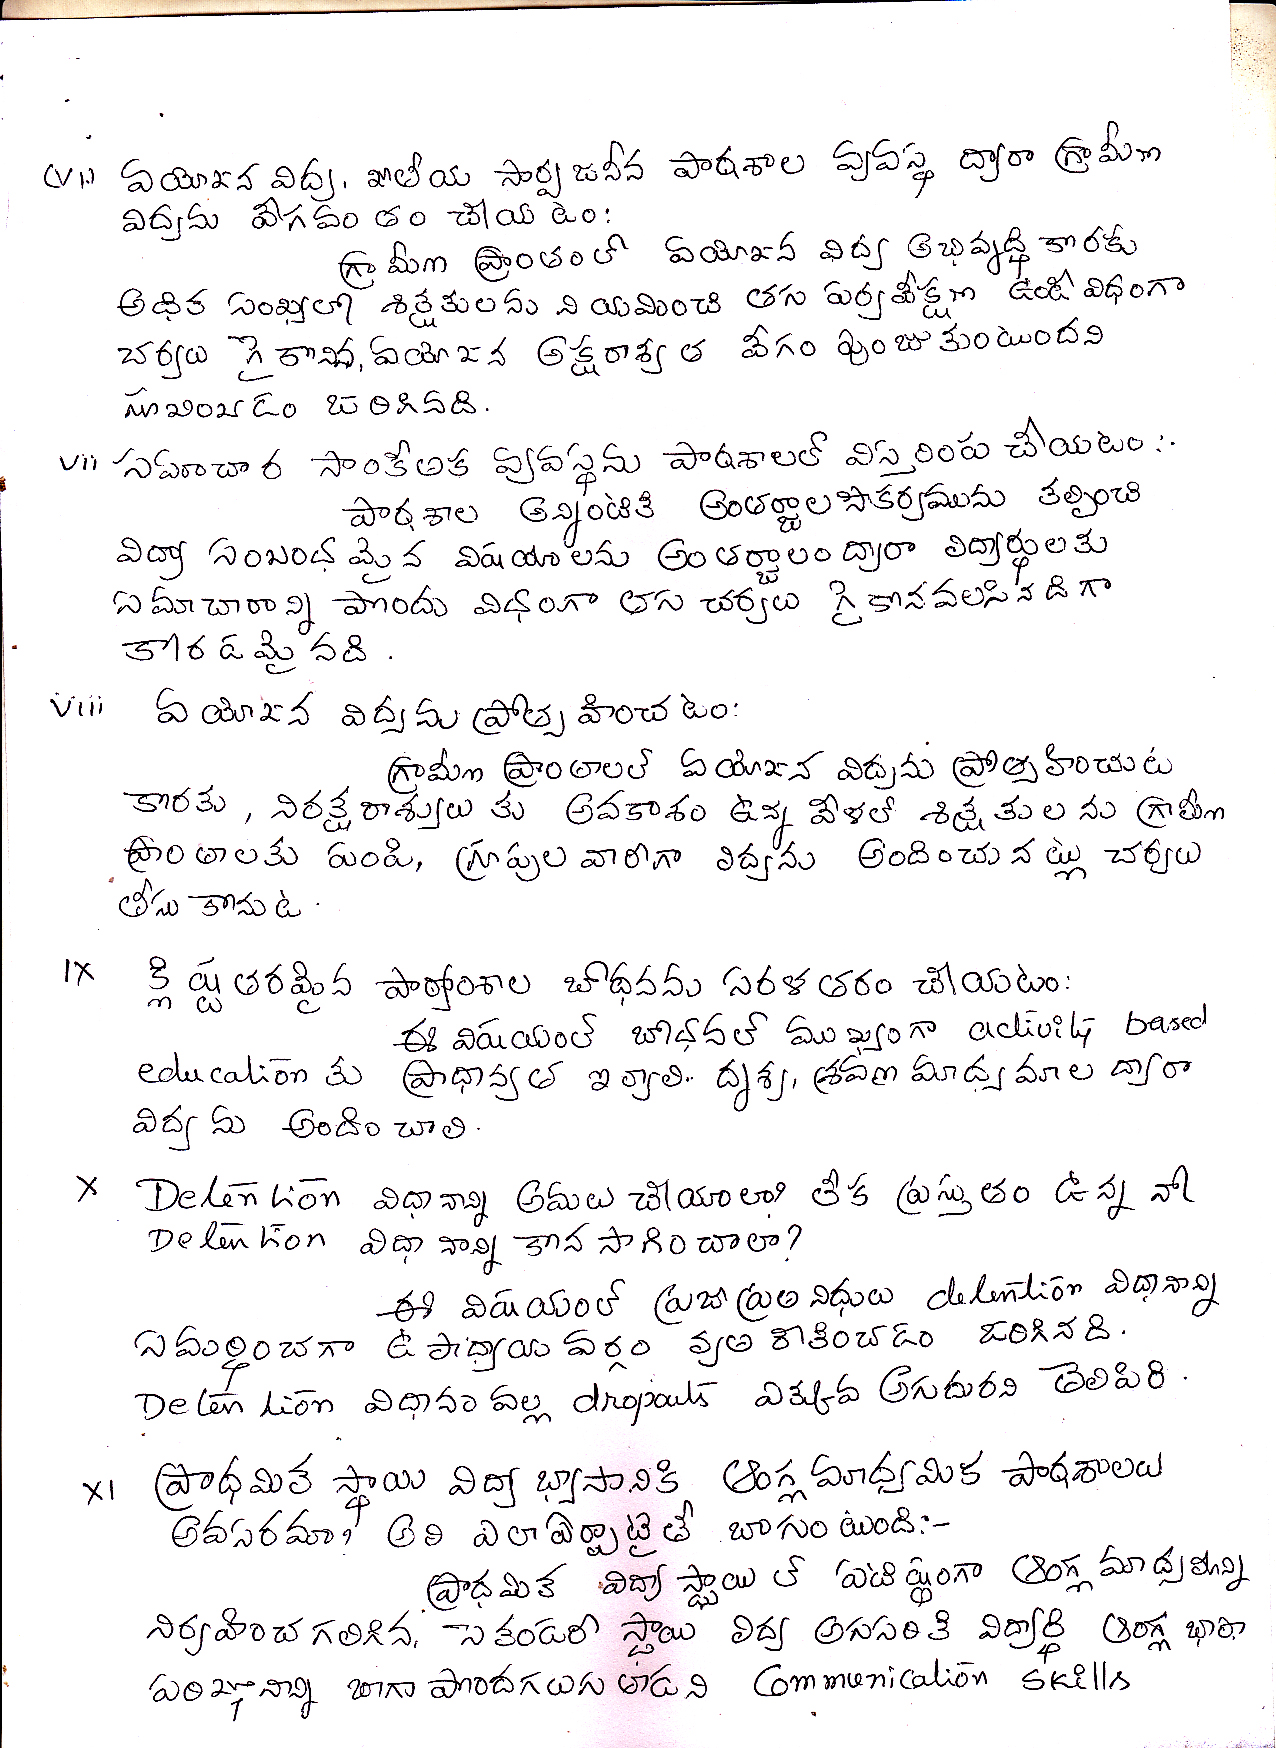 (vi) వయోజన విద్య, జాతీయ సార్వజనీన పాఠశాల వ్యవస్థ ద్వారా గ్రామీణ
విద్యను వేగవంతం చేయటం:
గ్రామీణ ప్రాంతంలో వయోజన విద్య అభివృద్ధి కొరకు
అధిక సంఖ్యలో శిక్షకులను నియమించి తగు పర్యవేక్షణ ఉండే విధంగా
చర్యలు గైకొనిన, వయోజన అక్షరాశ్యత వేగం పుంజుకుంటుందని
సూచించడం జరిగినది.
vii సమాచార సాంకేతిక వ్యవస్థను పాఠశాలలో విస్తరింప చేయటం:-
పాఠశాల అన్నింటికి అంతర్జాల సౌకర్యమును కల్పించి
విద్యా సంబంధమైన విషయాలను అంతర్జాలం ద్వారా విద్యార్థులకు
సమాచారాన్ని పొందు విధంగా తగు చర్యలు గైకొనవలసినదిగా
కోరడమైనది.
viii వయోజన విద్యను ప్రోత్సహించటం:
గ్రామీణ ప్రాంతాలలో వయోజన విద్యను ప్రోత్సహించుట
కొరకు, నిరక్షరాశ్యులకు అవకాశం ఉన్న వేళలో శిక్షకులను గ్రామీణ
ప్రాంతాలకు పంపి, గ్రూపుల వారీగా విద్యను అందించునట్లు చర్యలు
తీసుకొనుట.
IX క్లిష్టతరమైన పాఠ్యాంశాల బోధనను సరళతరం చేయటం:
ఈ విషయంలో బోధనలో ముఖ్యంగా activity based
education కు ప్రాధాన్యత ఇవ్వాలి. దృశ్య, శ్రవణ మాధ్యమాల ద్వారా
విద్యను అందించాలి.
X Detention విధానాన్ని అమలు చేయాలా? లేక ప్రస్తుతం ఉన్న నో
Detention విధానాన్ని కొనసాగించాలా?
ఈ విషయంలో ప్రజాప్రతినిధులు detention విధానాన్ని
సమర్థించగా ఉపాధ్యాయ వర్గం వ్యతిరేకించడం జరిగినది.
Detention విధానం వల్ల dropouts ఎక్కువ అగుదురని తెలిపిరి.
XI ప్రాథమిక స్థాయి విద్యాభ్యాసానికి ఆంగ్ల మాధ్యమిక పాఠశాలలు
అవసరమా? అవి ఎలా ఏర్పాటైతే బాగుంటుంది:-
ప్రాథమిక విద్యా స్థాయిలో పటిష్ఠంగా ఆంగ్ల మాధ్యమాన్ని
నిర్వహించగలిగిన, సెకండరీ స్థాయి విద్య అనుసరికి విద్యార్థి ఆంగ్ల భాషా
పరిజ్ఞానాన్ని బాగా పొందగలుగుతాడని Communication skills